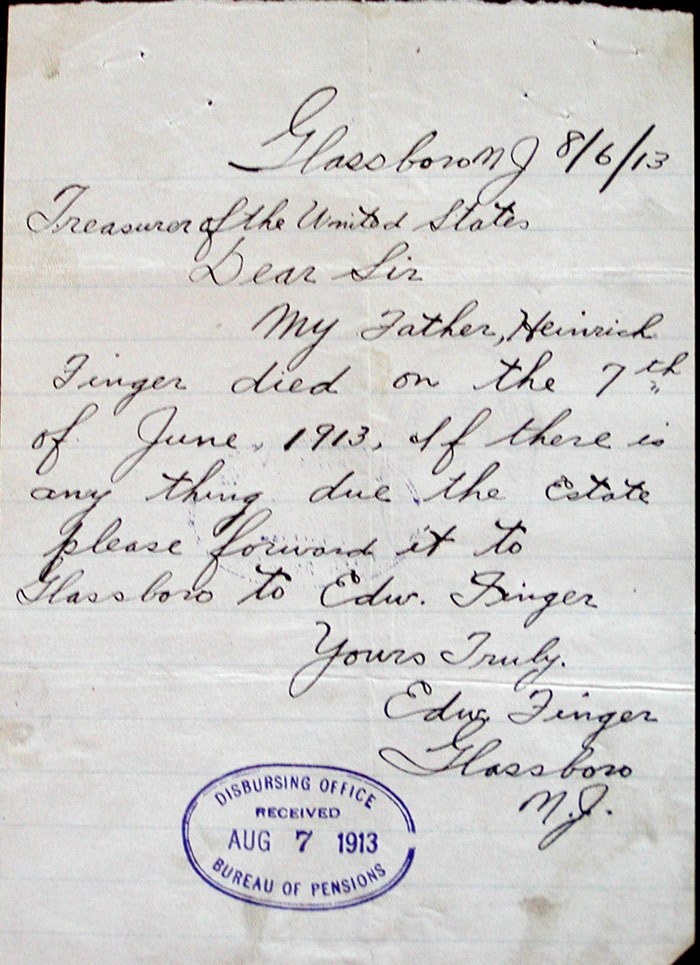 Glassboro N J 8/6/13
Treasurer of the United States
Dear Sir
My Father, Heinrich
Finger died on the 7th
of June, 1913, If there is
any thing due the Estate
please forward it to
Glassboro to Edw. Finger
Yours Truly.
Edw. Finger
Glassboro
N.J.
DISBURSING OFFICE
RECEIVED
AUG 7 1913
BUREAU OF PENSIONS